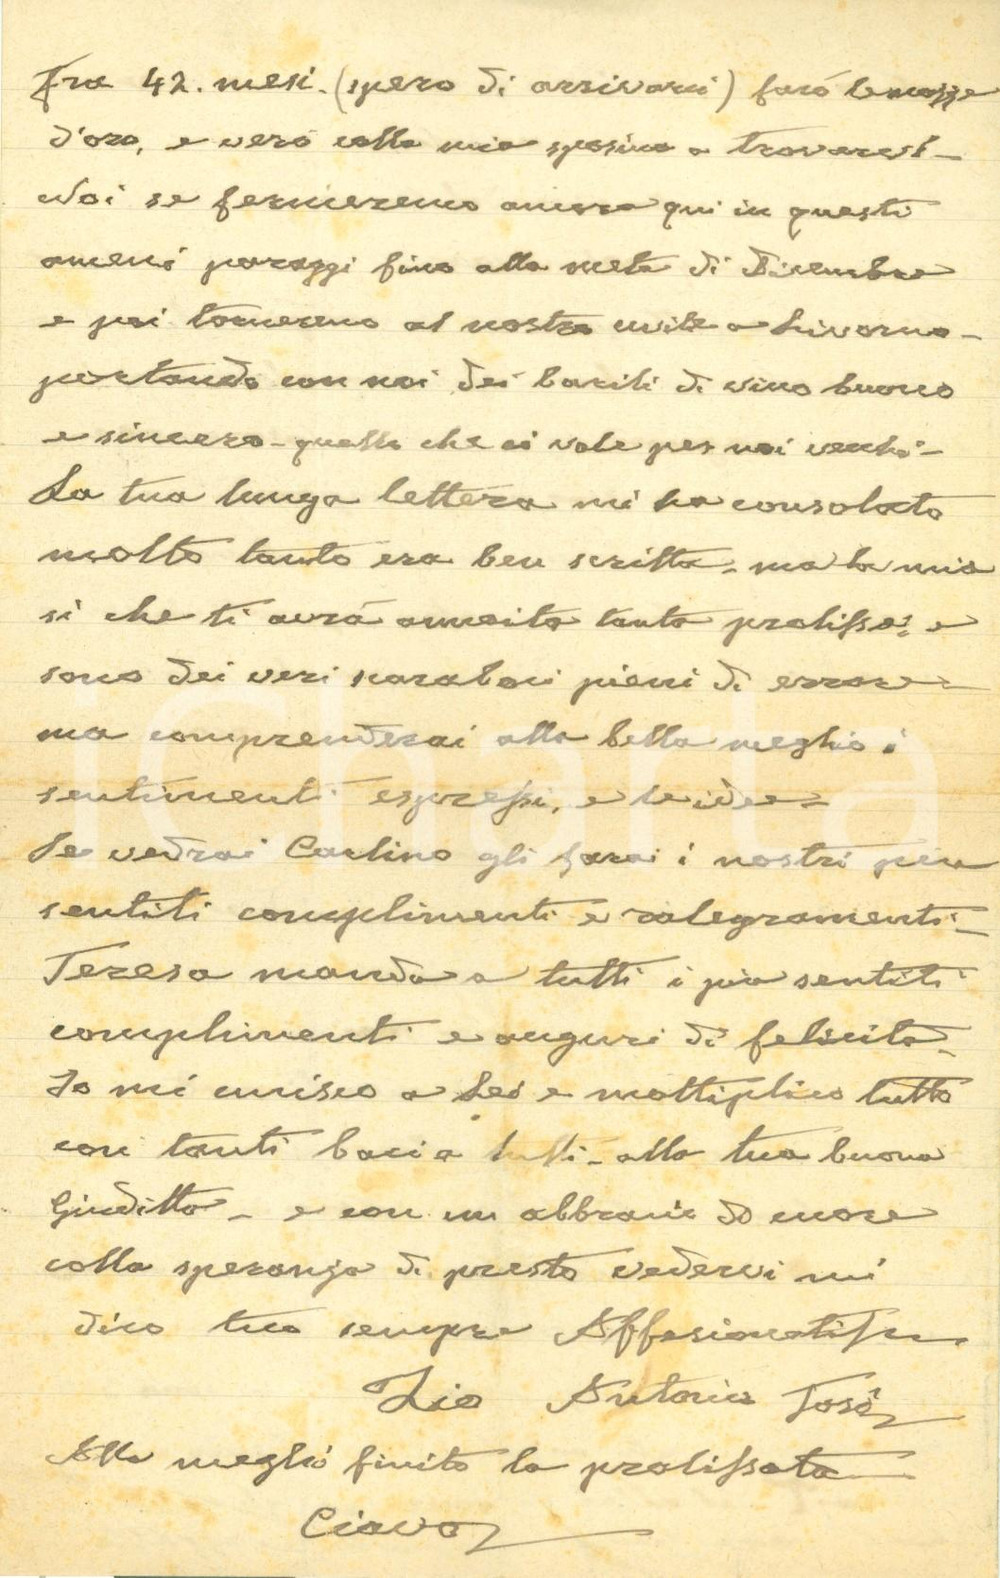 Fra 42. mesi - (spero di arrivarci) farò le nozze
d'oro, e verò colla mia sposina a trovarvi -
Noi se fermeremo ancora qui in questi
ameni paraggi fino alla metà di Dicembre
e poi torneremo al nostro a Livorno -
portando con noi dei barili di vino buono
e sincero - quello che ci vole per noi vecchi -
La tua lunga lettera mi ha consolato
molto tanto era ben scritta - ma la mia
si che ti avrà annoiato tanto prolissa e
sono dei veri scaraboci pieni di errore -
ma comprenderai alla bella meglio i
sentimenti espressi, e le idee -
Se vedrai Carlino gli farai i nostri più
sentiti complimenti e ralegramenti -
Teresa manda a tutti i più sentiti
complimenti e auguri di felicità -
Io mi unisco a Lei e moltiplico tutto
con tanti baci a tutti - alla tua buona
Giuditta - e con un abbracio do cuore
colla speranza di presto vedervi mi
dico tuo sempre Affesionatissm
Zio Antonio Tosi
Alla meglio finito la prolissata
Ciavo